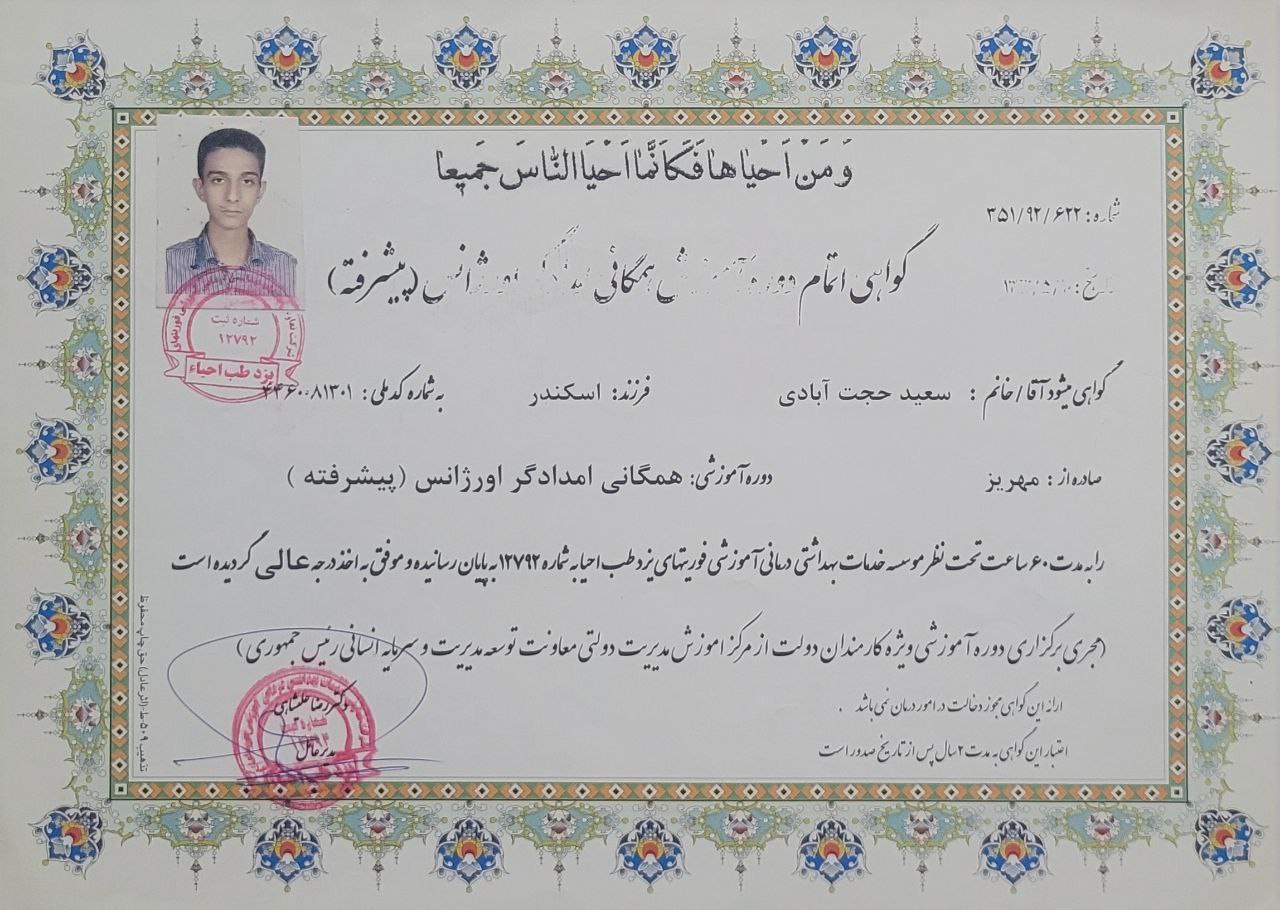 وَ مَنْ اَحْیاها فَکَاَنَّما اَحْیَا النّاسَ جَمیعا
شماره: ۳۵۱/۹۲/۶۲۲
تاریخ:
گواهی اتمام دوره آموزش همگانی امدادگر اورژانس (پیشرفته)
شماره ثبت
۱۲۷۹۲
یزد طب احیاء
گواهی میشود آقا/خانم : سعید حجت آبادی فرزند: اسکندر به شماره کد ملی: ۴۴۶۰۰۸۱۳۰۱
صادره از : مهریز دوره آموزشی: همگانی امدادگر اورژانس (پیشرفته )
را به مدت ۶۰ ساعت تحت نظر موسسه خدمات بهداشتی درمانی آموزشی فوریتهای یزد طب احیا به شماره ۱۲۷۹۲ به پایان رسانیده و موفق به اخذ درجه عالی گردیده است
(مجری برگزاری دوره آموزشی ویژه کارمندان دولت از مرکز اموزش مدیریت دولتی معاونت توسعه مدیریت و سرمایه انسانی رئیس جمهوری)
ارائه این گواهی مجوز دخالت در امور درمان نمی باشد .
اعتبار این گواهی به مدت ۲ سال پس از تاریخ صدور است
دکتر رضا علیشاهی
مدیر عامل
تذهیب ۵۰۹-ط-(اثر عادل) حق چاپ محفوظ